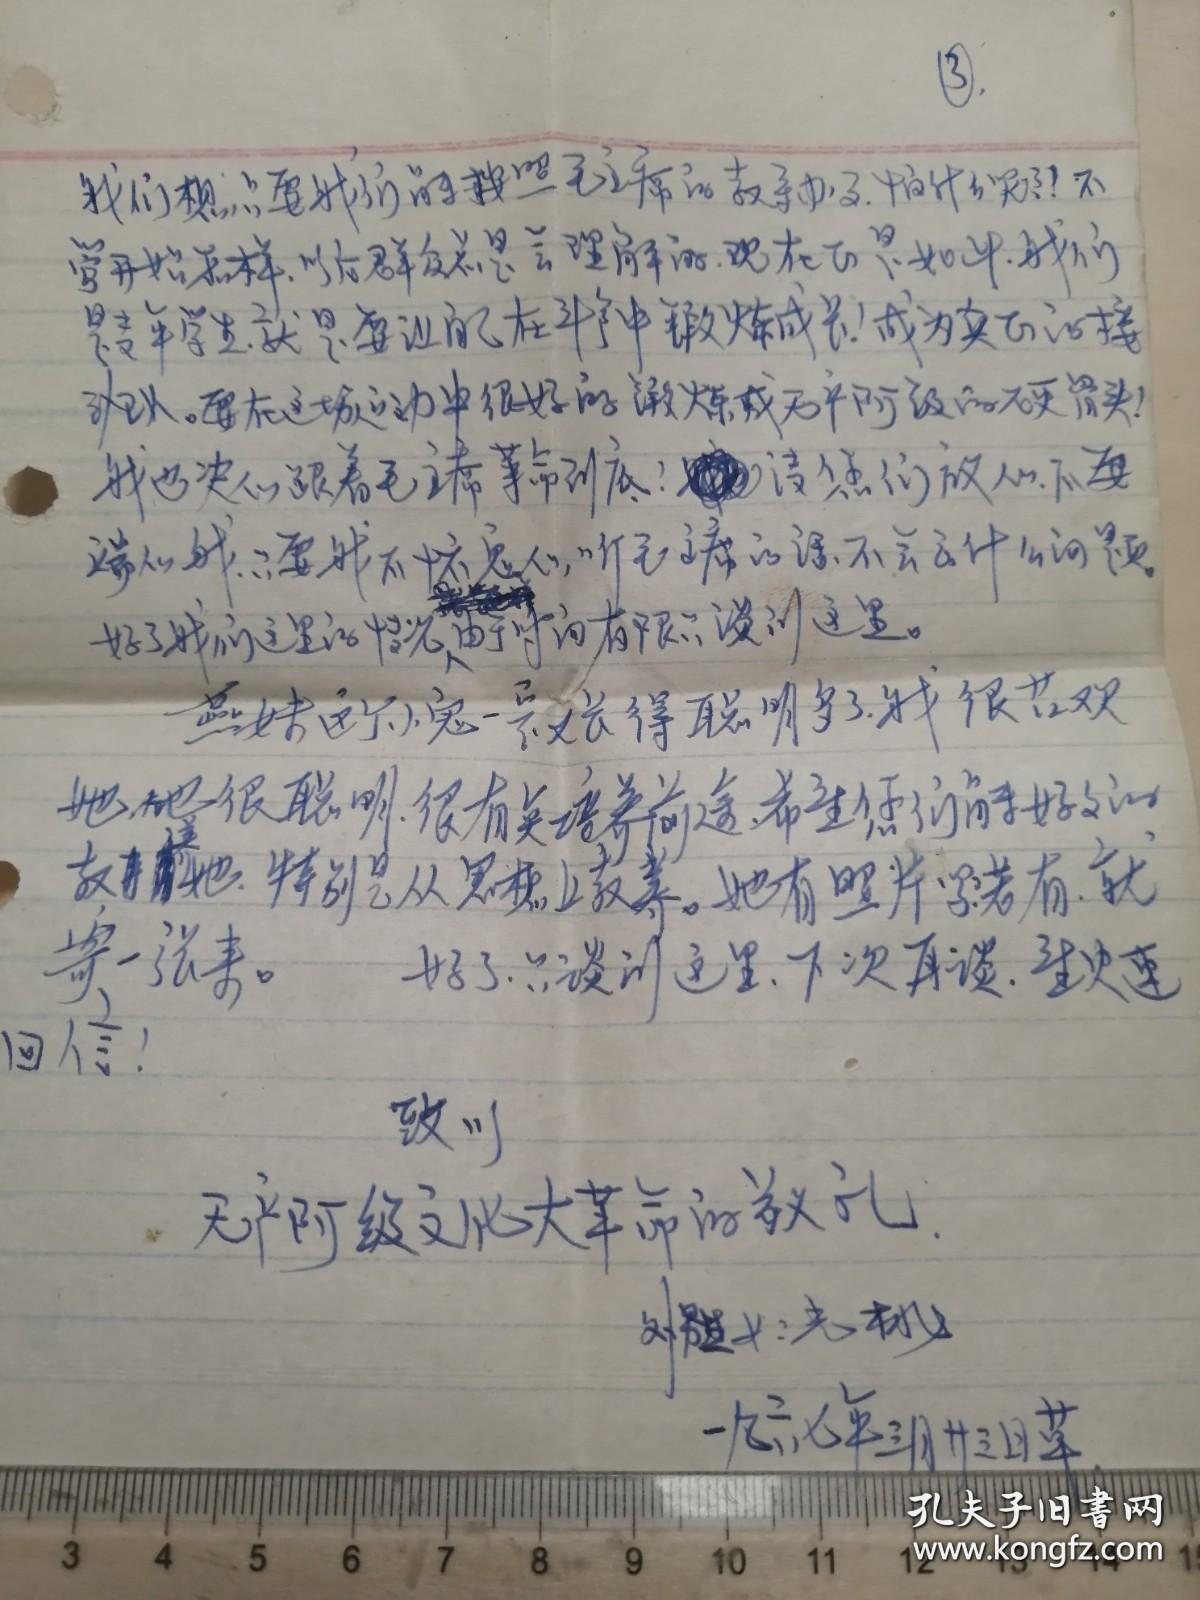 ③.
我们想只要我们能按照毛主席的教导办了.怕什么呢!不
管开始怎样.以后群众总是会理解的.现在正是如此.我们
是青年学生.就是要让自己在斗争中锻炼成长!成为真正的接
班人。要在这场运动中很好的锻炼成无产阶级的硬骨头!
我也决心跟着毛主席革命到底! 请您们放心.不要
端心我.只要我不怀鬼心,听毛主席的话.不会出什么问题。
好了我们这里的情况,由于时间有限只谈到这里。
燕妹这个小鬼一定又长得聪明多了.我很喜欢
她.她很聪明.很有点培养前途.希望您们能好好的
教养她.特别是从思想上教养。她有照片吗若有.就
寄一张来。 好了.只谈到这里.下次再谈.望决速
回信!
致以
无产阶级文化大革命的敬礼.
一九六七年三月廿三日草.
3 4 5 6 7 8 9 10 11 12 13 14 15
孔夫子旧书网
www.kongfz.com